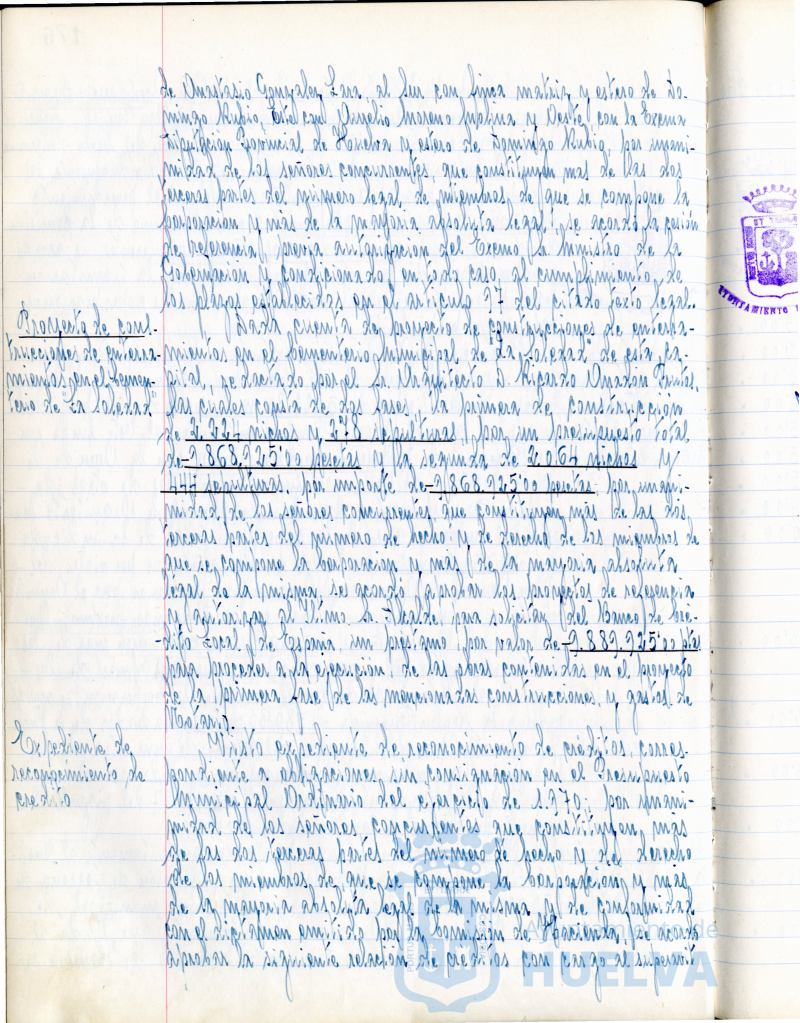 de Anastasio Gonzalez Lara, al Sur con finca matriz y estero de Do-
mingo Rubio, Este con Aurelio Moreno Molina y Oeste con la Excma
Diputación Provincial de Huelva y estero de Domingo Rubio, por unani-
midad de los señores concurrentes, que constituyen mas de las dos
terceras partes del número legal de miembros de que se compone la
Corporacion y más de la mayoria absoluta legal, se acordó la cesión
de referencia, previa autorización del Excmo Sr. Ministro de la
Gobernación y condicionado, en todo caso, al cumplimiento de
los plazos establecidos en el articulo 97 del citado texto legal.
Proyecto de cons-
trucciones de enterra-
mientos en el Cemen-
terio de "La Soledad"
Dada cuenta de proyecto de construcciones de enterra-
mientos en el Cementerio Municipal de "La Soledad" de esta Ca-
pital, redactado por el Sr. Arquitecto D. Ricardo
las cuales consta de dos fases, la primera de construcción
de 2.224 nichos y 278 sepulturas, por un presupuesto total
de -9.868.925'00 pesetas y la segunda de 2.064 nichos y
444 sepulturas, por importe de -9.868.925'00 pesetas, por unani-
midad de los señores concurrentes que constituyen más de las dos
terceras partes del número de hecho y de derecho de los miembros de
que se compone la Corporacion y más de la mayoria absoluta
legal de la misma, se acordó aprobar los proyectos de referencia
y autorizar al Iltmo. Sr. Alcalde, para solicitar del Banco de Cré-
dito Local de España, un préstamo por valor de -9.889.925'00 ptas
para proceder a la ejecución de las obras contenidas en el proyecto
de la primera fase de las mencionadas construcciones, y gastos de
Notario.
Expediente de
reconocimiento de
credito
Visto expediente de reconocimiento de créditos, corres-
pondiente a obligaciones sin consignación en el Presupuesto
Municipal Ordinario del ejercicio de 1.970; por unani-
midad de los señores concurrentes que constituyen más
de las dos terceras partes del número de hecho y de derecho
de los miembros de que se compone la Corporación y mas
de la mayoria absoluta legal de la misma y de conformidad
con el dictamen emitido por la Comisión de Hacienda, se acordó
aprobar la siguiente relación de creditos con cargo al superavit
Ayuntamiento de
HUELVA